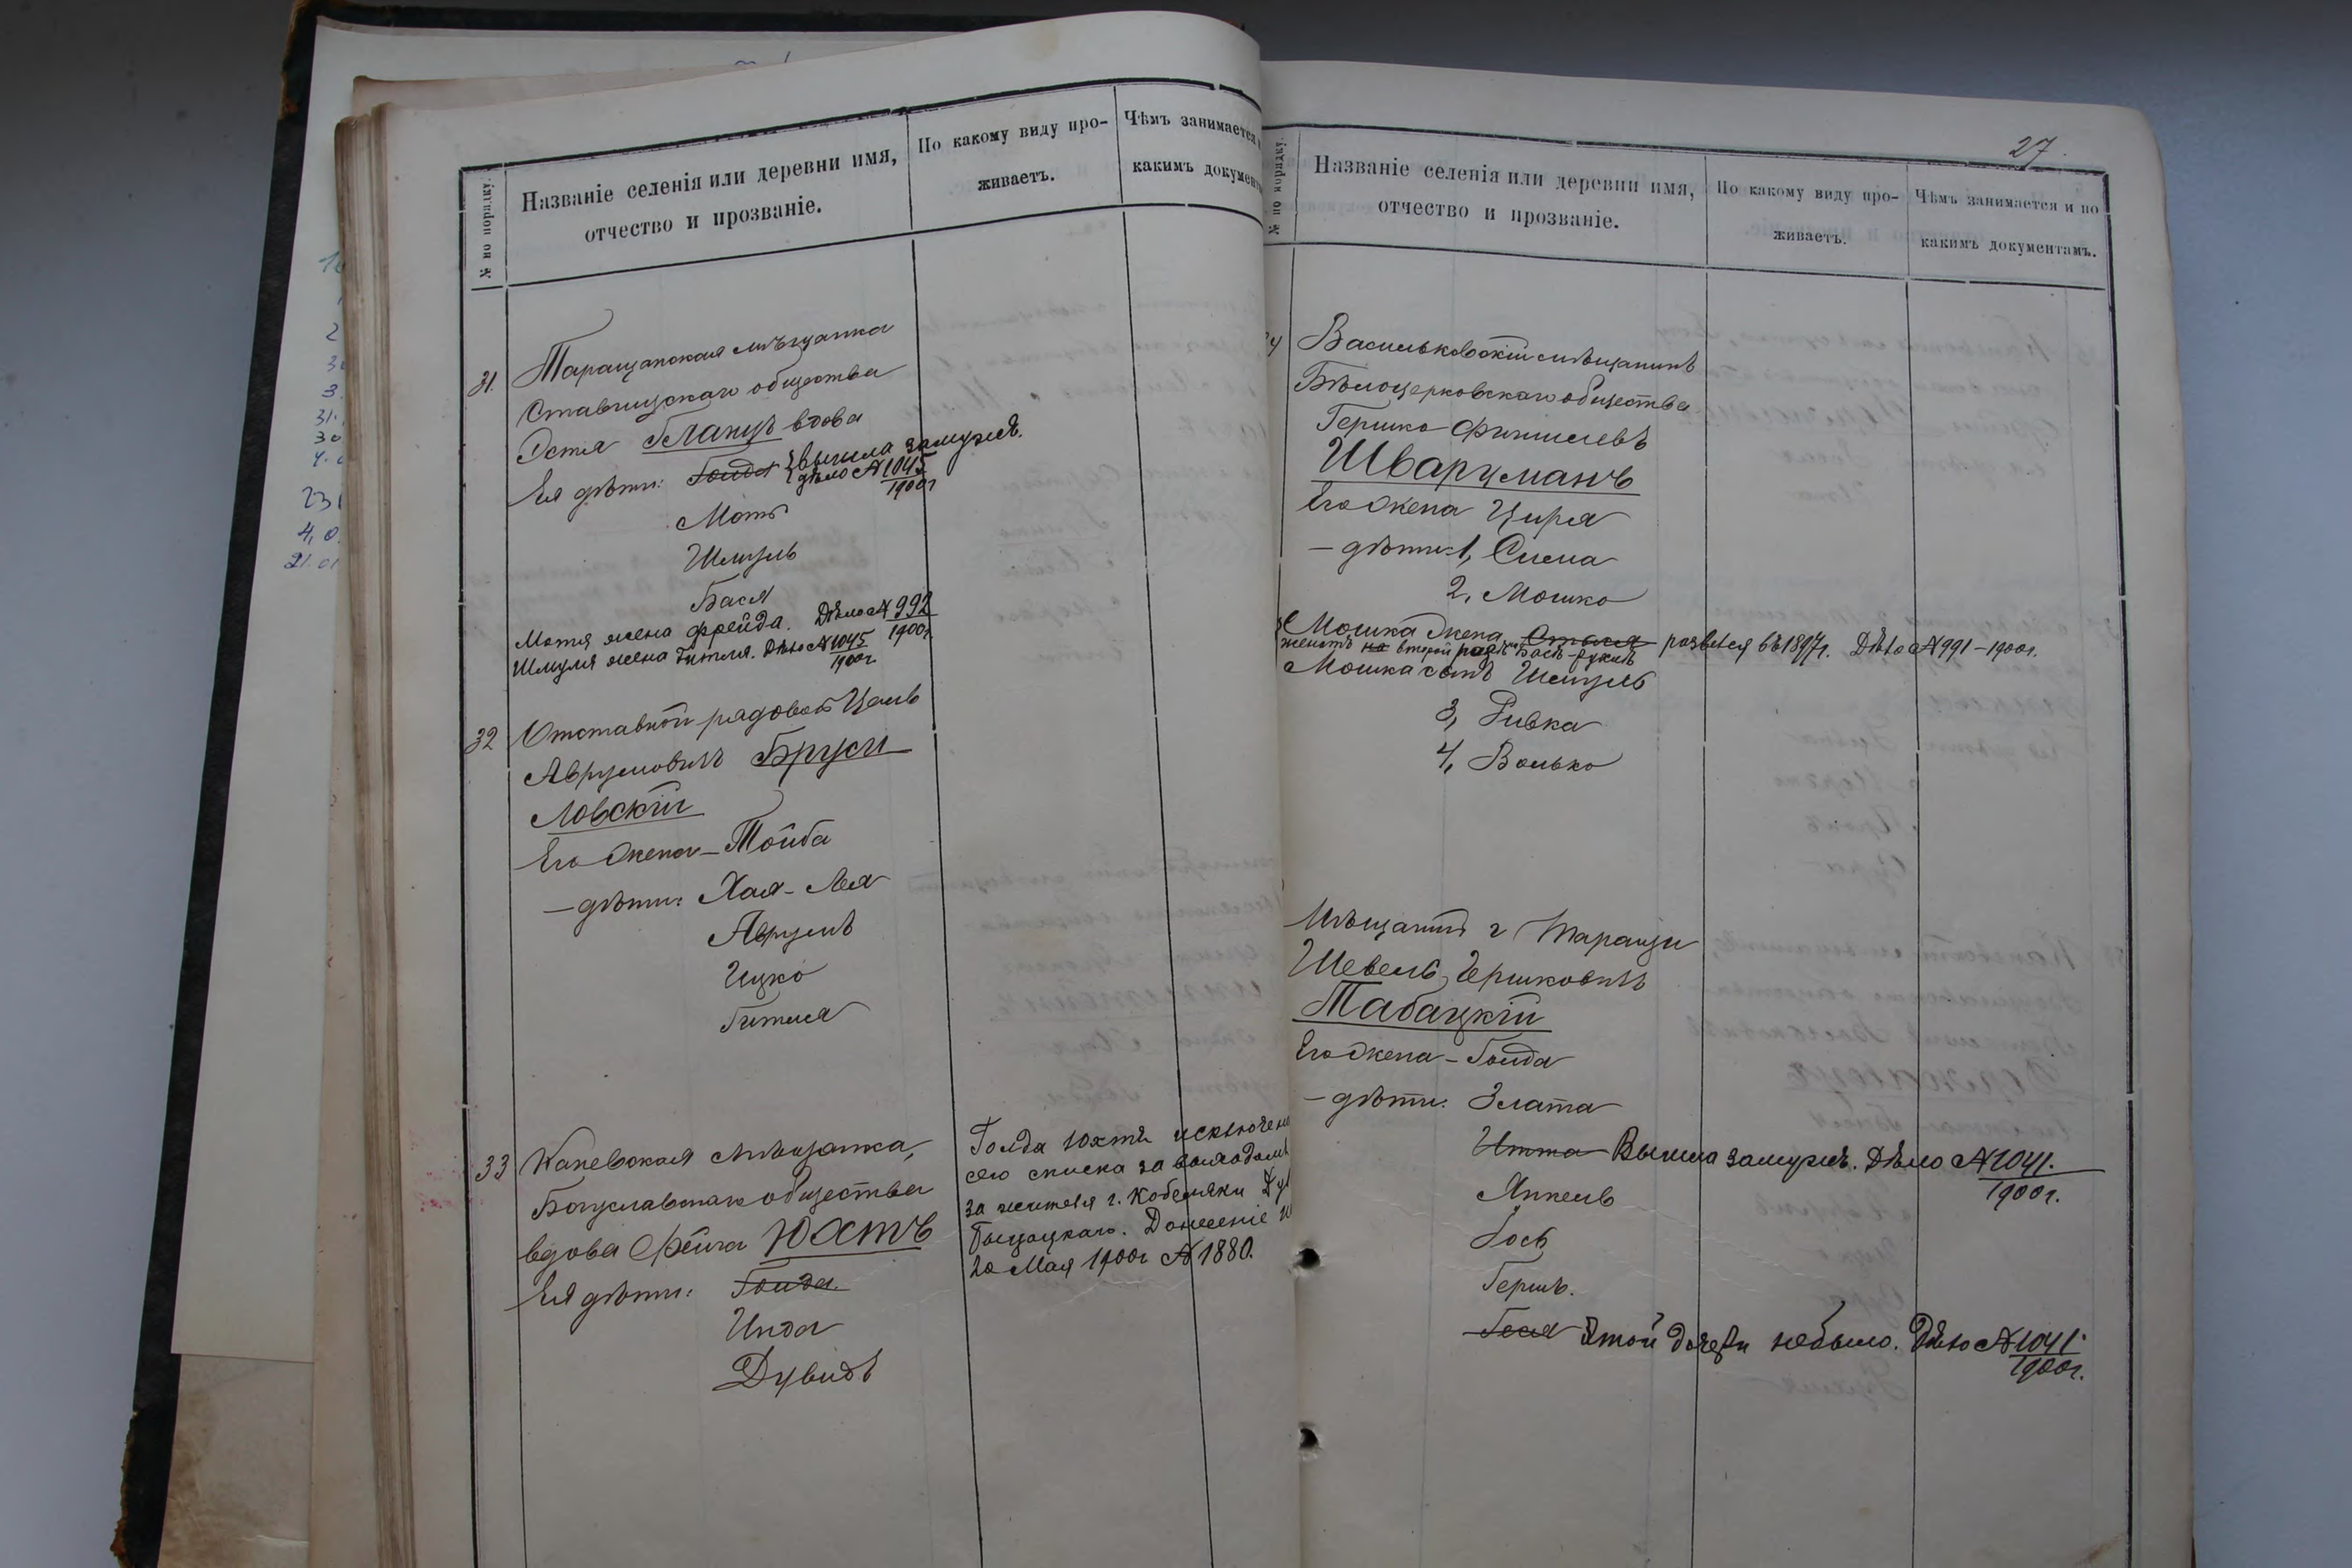 № по порядку.
Названіе селенія или деревни имя,
отчество и прозваніе.
По какому виду про-
живаетъ.
Чѣмъ занимается
какимъ документ
31. Таращанская мѣщанка
Ставищскаго общества
Эстя Бланкъ вдова
Ея дѣти: Голда вышла замужъ.
дѣло № 1045
1900г
Мотя
Шмуль
Бася
Мотя жена Фрейда. Дѣло № 992
1900г.
Шмуля жена Гитля. Дѣло № 1045
1900г.
32 Отставной рядовой Цаль
Аврумовичъ Бруси
ловскій
Его жена - Тойба
- дѣти: Хая - Лея
Аврумъ
Ицко
Гитля
33 Каневская мѣщанка,
Богуславскаго общества
вдова Фейга Юхтъ
Ея дѣти: Голда
Инда
Дувидъ
Голда Юхтъ исключен
сего списка за выходомъ
за жителя г. Кобеляки
20 Мая 1900г № 1880.
27
№ по порядку.
Названіе селенія или деревни имя,
отчество и прозваніе.
По какому виду про-
живаетъ.
Чѣмъ занимается и по
какимъ документамъ.
Васильковскій мѣщанинъ
Бѣлоцерковскаго общества
Гершко Фишелевъ
Шварцманъ
Его жена Цирля
- дѣти: 1, Сима
2, Мошко
Мошка жена развелся въ 1897г. Дѣло № 991 - 1900г.
женатъ на второй разъ
Мошка сынъ Шмуль
3, Ривка
4, Волько
Мѣщанинъ г Таращи
Шевель Гершковичъ
Табацкій
Его жена - Голда
- дѣти: Злата
Итта Вышла замужъ. Дѣло № 1041.
1900г.
Янкель
Іось
Гершъ.
Бася Этой дочери не было. Дѣло № 1041
1900г.